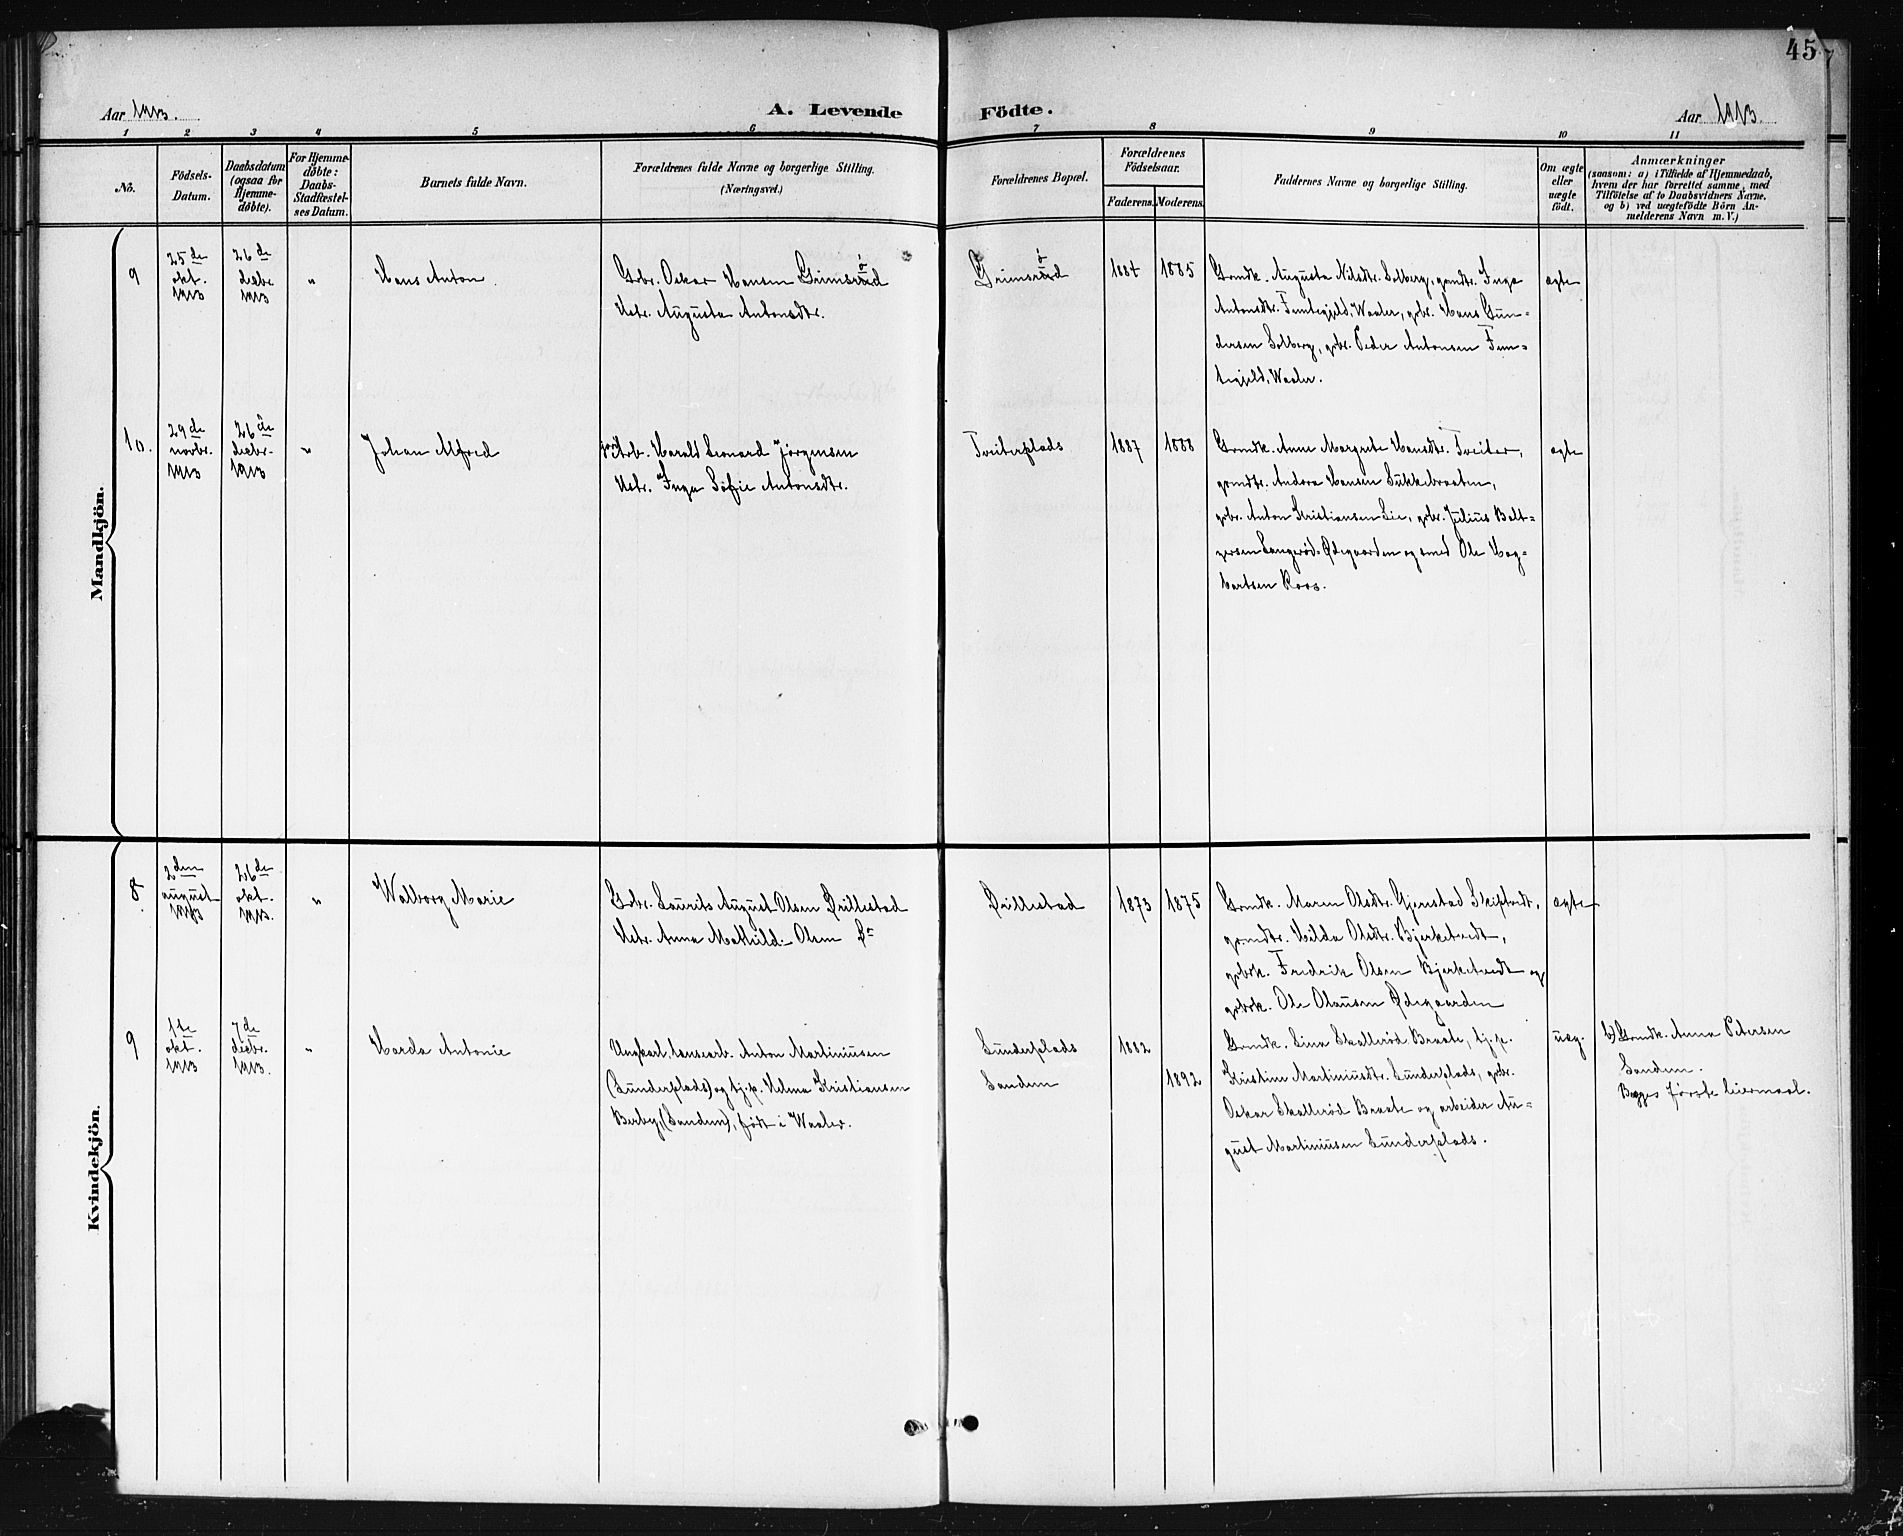 45
Aar 1913. A. Levende Födte. Aar 1913.
1 2 3 4 5 6 7 8 9 10 11
No.
Födsels-
Datum.
Daabsdatum
(ogsaa for
Hjemme-
döbte).
For Hjemme-
döbte:
Daabs-
Stadfæstel-
ses Datum.
Barnets fulde Navn.
Forældrenes fulde Navne og borgerlige Stilling.
(Næringsvei.)
Forældrenes Bopæl.
Forældrenes
Födselsaar.
Faderens. Moderens.
Faddernes Navne og borgerlige Stilling.
Om ægte
eller
uægte
födt.
Anmærkninger
(saasom: a) i Tilfælde af Hjemmedaab,
hvem der har forrettet samme, med
Tilföielse af to Daabsvidners Navne,
og b) ved uægtefödte Börn An-
melderens Navn m. V.)
Mandkjön.
9
25de
okt.
1913
26de
decbr.
1913
"
Hans Anton
Gbr. Oskar Hansen Grimsrød
Hstr. Augusta Antonsdtr.
Grimsrød
1884
1885
Grmdk. Augusta Nilsdtr. Solberg, grmdtr. Inga
Antonsdtr. Femtegjeld, Waaler, gbr. Hans Gun-
dersen Solberg, gbr. Peder Antonsen Fem-
tegjeld, Waaler.
ægte
10.
29de
novbr.
1913
26de
decbr.
1913
"
Johan Alfred
Harald Leonard Jörgensen
Hstr. Inga Sofie Antonsdtr.
Tveiterplads
1887
1888
Grmdk. Anne Margrete Hansdtr. Tveiter,
grmdtr. Andora Hansen Sukkebraaten,
gbr. Anton Kristiansen Lie, gbr. Julius Balt-
zersen Langerød-Ødegaarden og smed Ole Hag-
bartsen Roos.
ægte
Kvindekjön.
8
2den
august
1913
26de
okt.
1913.
"
Walborg Marie
Gbr. Laurits August Olsen Ørillestad
Hstr. Anna Mathilde Olsen
Ørillestad
1873
1875
Grmdk. Maren Olsdtr. Gjerstad Skiptvedt,
grmdtr. Hilda Olsdtr. Bjerketvedt,
gbsk. Fredrik Olsen Bjerketvedt og
gbsk. Ole Olausen Ødegaarden
ægte
9
1ste
okt.
1913
7de
decbr.
1913.
"
Harda Antonie
Ungkarl, Anton Martiniusen
(Lunderplads) og tj.p. Helma Kristiansen
Berby, (Sanden), født i Waaler.
Lunderplads
Sanden
1882
1892
Grmdk. Lina Skallerød Braate, tj.p.
Kristine Martiniusdtr. Lunderplads, gbr.
Oskar Skallerød Braate og arbeider Au-
gust Martiniusen Lunderplads.
uæg.
b) Grmdk. Anna Petersen
Sanden.
Begges første leiermaal.